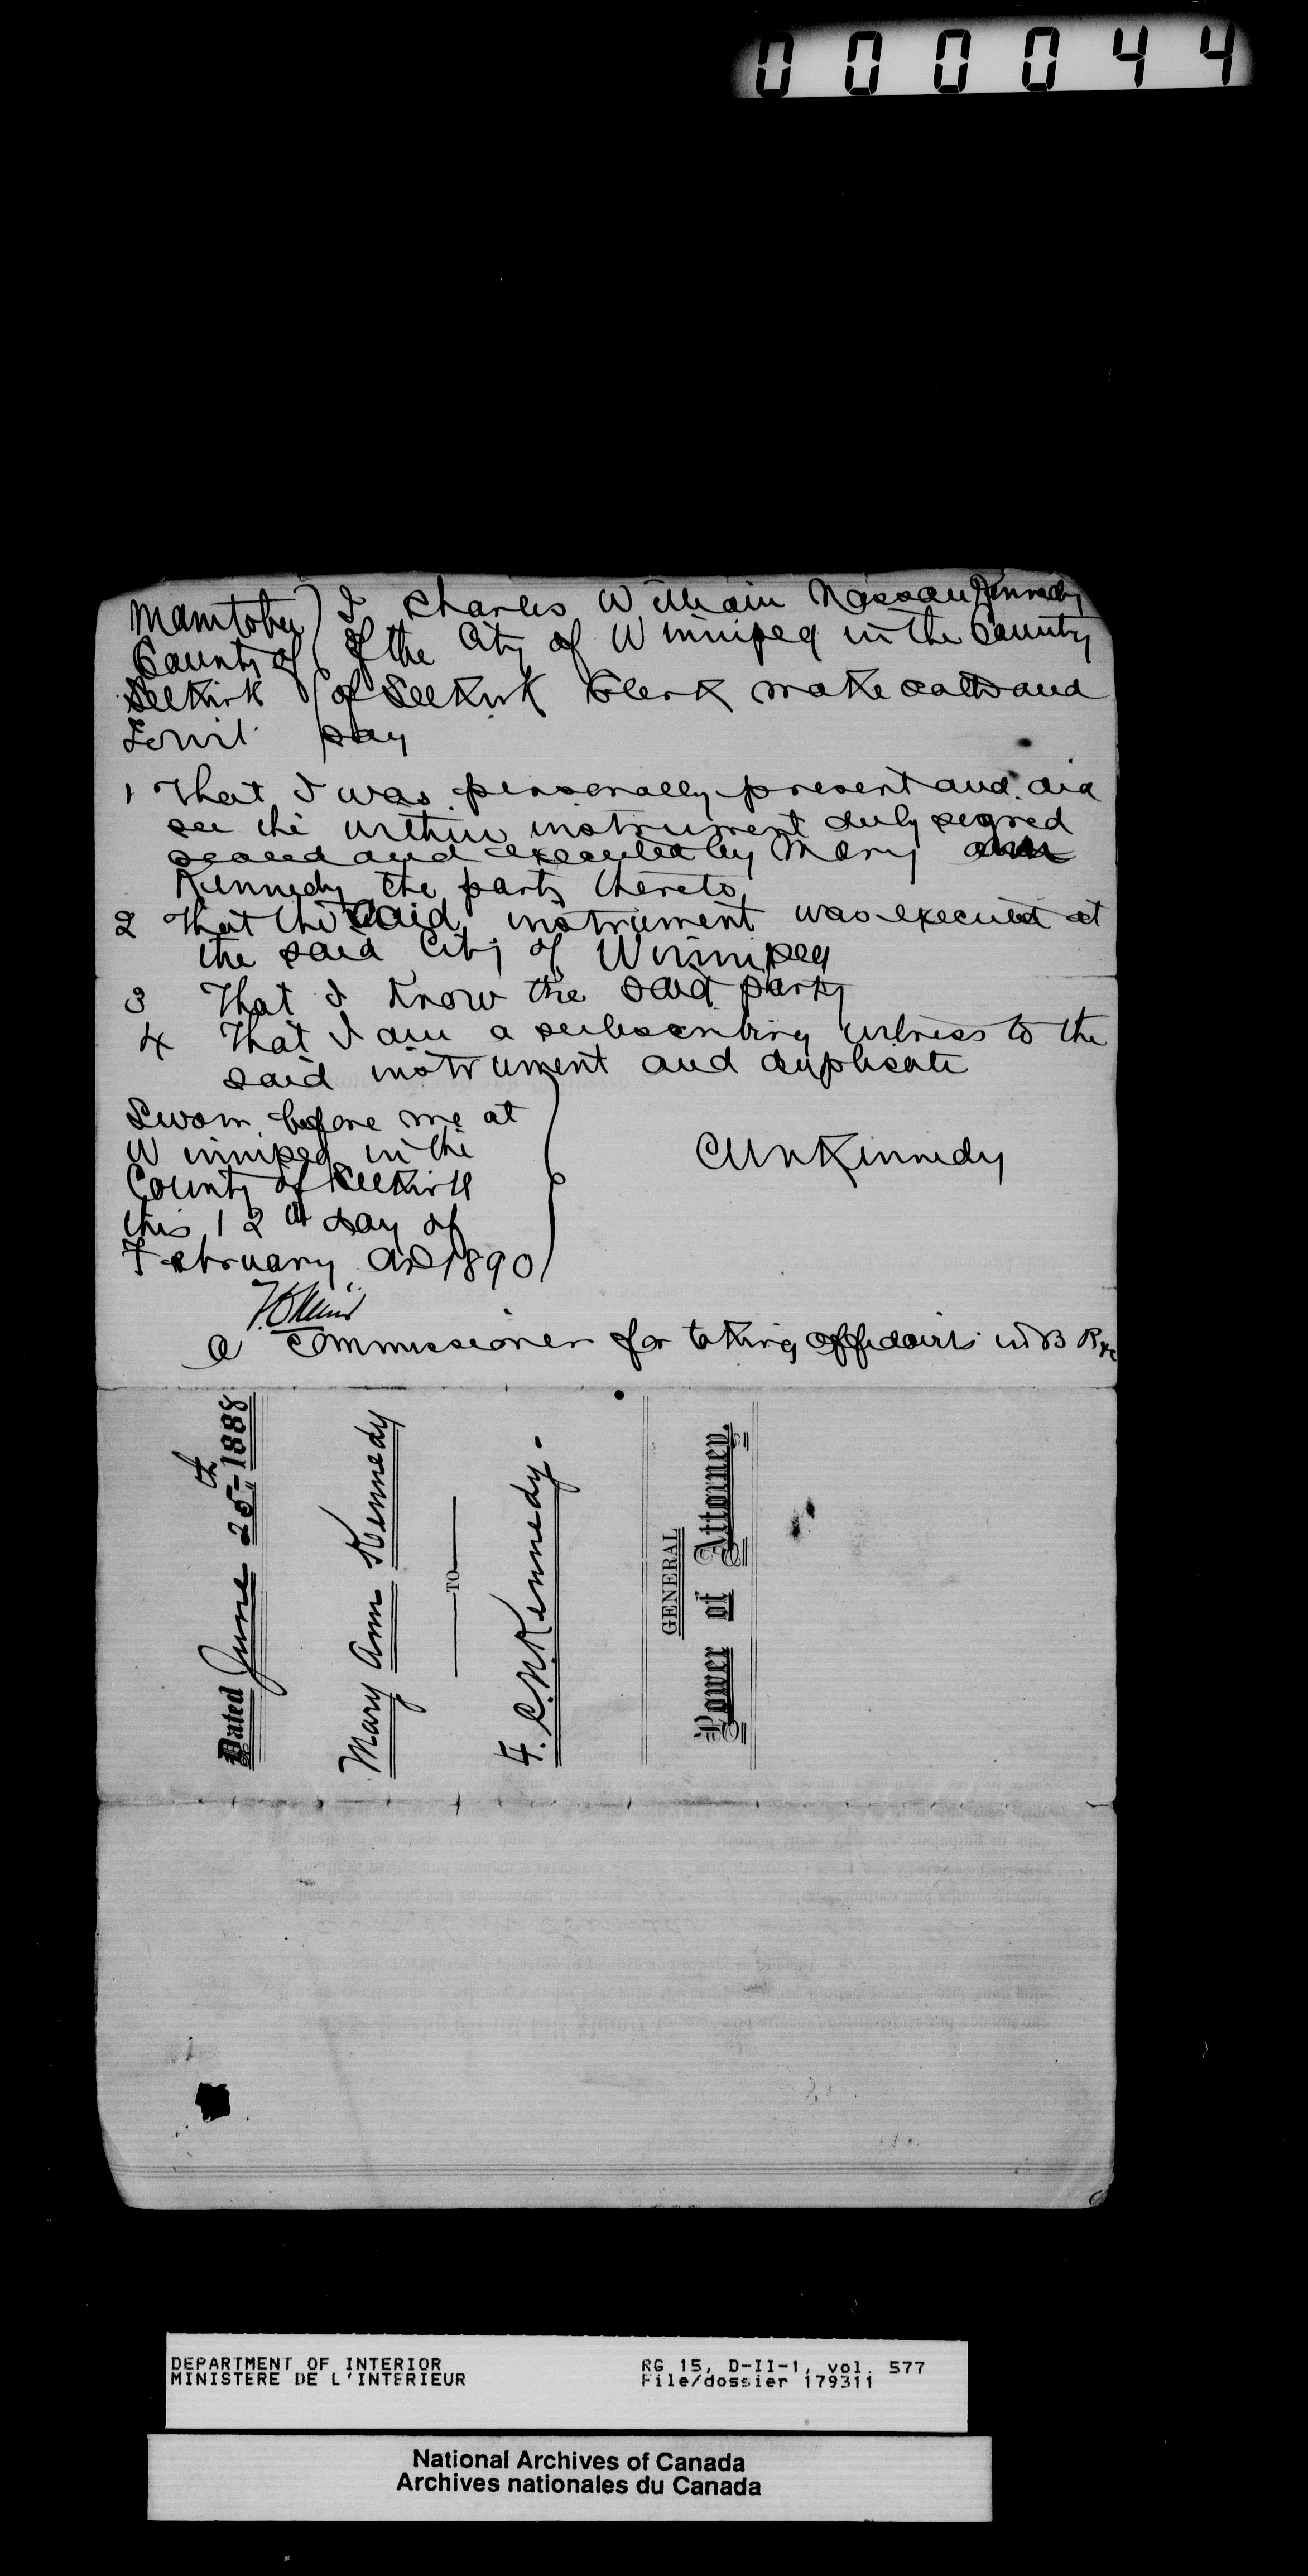 000044
Manitoba I Charles William Nassau Kennedy
County of of the City of Winnipeg in the County
Selkirk of Selkirk Clerk make oath and
To wit say
1 That I was personally present and did
see the within instrument duly signed
sealed and executed by Mary Ann
Kennedy the party thereto
2 That the said instrument was executed at
the said City of Winnipeg
3 That I know the said party
4 That I am a subscribing witness to the
said instrument and duplicate
Sworn before me at
Winnipeg in the
County of Selkirk
this 12th day of
February AD 1890
CWNKennedy
A Commissioner for taking affidavits in B R &c
Dated June 25th 1888
Mary Ann Kennedy
TO
F. C. N. Kennedy.
GENERAL
Power of Attorney.
DEPARTMENT OF INTERIOR
MINISTERE DE L'INTERIEUR
RG 15, D-II-1, vol. 577
File/dossier 179311
National Archives of Canada
Archives nationales du Canada